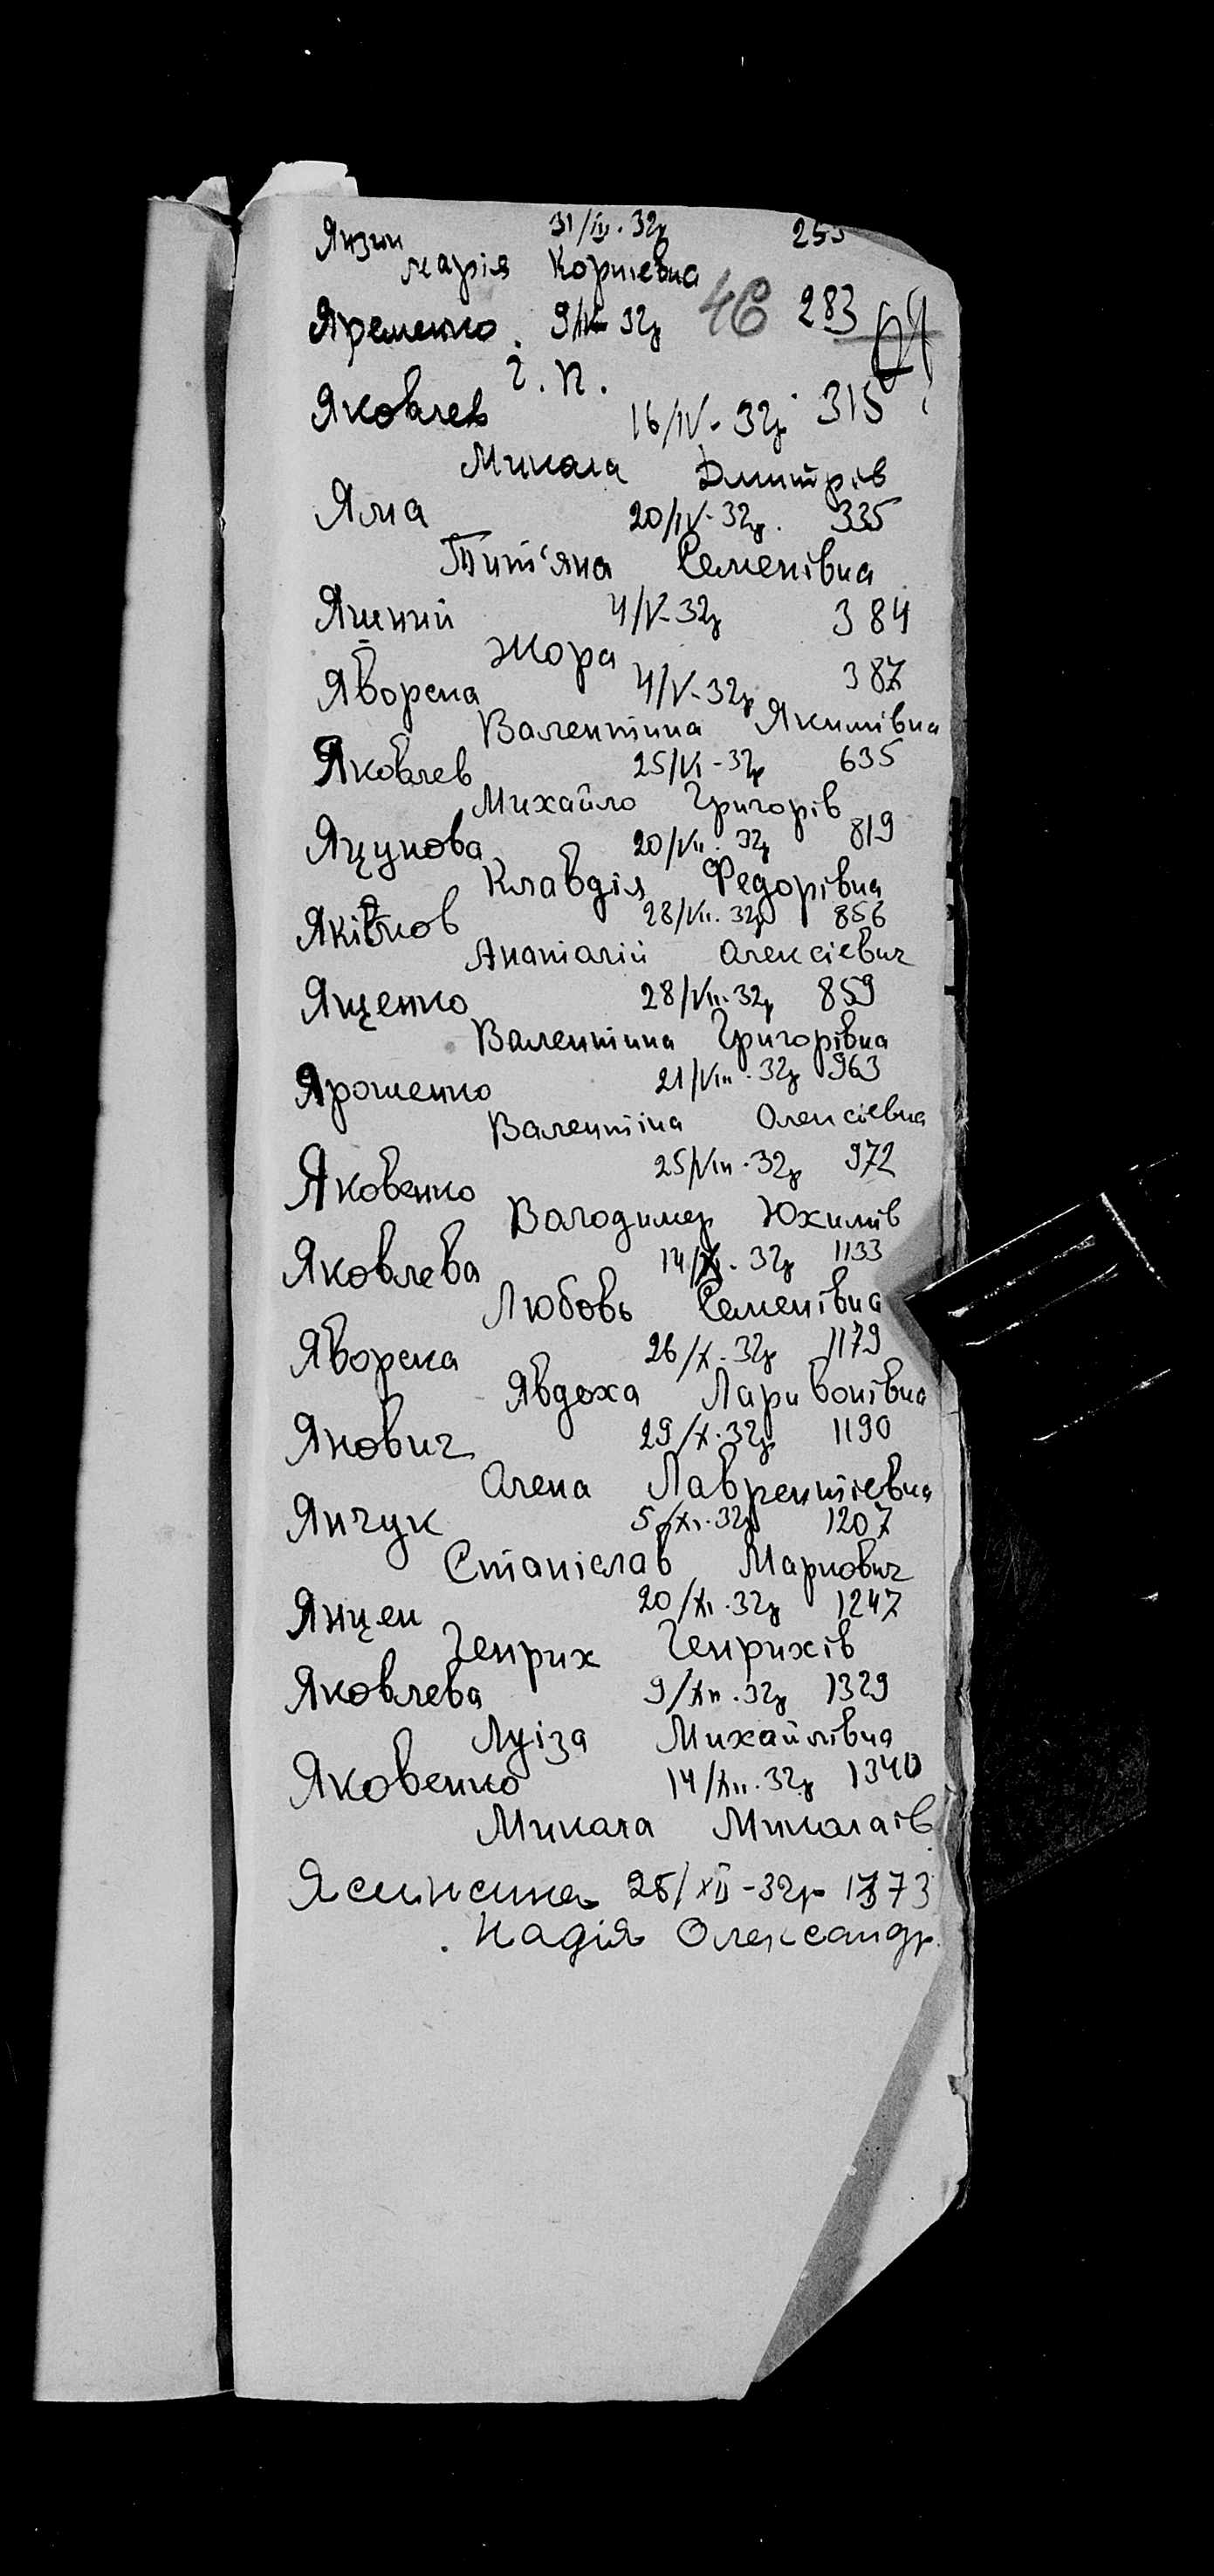 Янзин 31/III.32р 255
Марія Корніевна
46
Яременко 9/IV 32р 283
Г. П.
Яковлев 16/IV-32р 315
Микола Дмитрів
Яма 20/IV-32р. 335
Тит'яна Семенівна
4/V-32р 384
Жора
Яворска 4/V-32р 387
Валентина Якимівна
Яковлев 25/VI-32р 635
Михайло Григорів
Яцунова 20/VII.32р 819
Клавдія Федорівна
28/VII.32р 856
Анатолій Олексієвич
Ященко 28/VII.32р 859
Валентина Григорівна
Ярошенко 21/VIII.32р 963
Валентіна Олексієвна
Яковенко 25/VIII.32р 972
Володимер Юхимів
Яковлева 14/X.32р 1133
Любовь Семенівна
Яворска 26/X.32р 1179
Явдоха Ларивонівна
Янович 29/X.32р 1190
Олена Лаврентієвна
Янчук 5/XI.32р 1207
Станіслав Маркович
Янцен 20/XI.32р 1247
Генрих Генрихів
Яковлева 9/XII.32р 1329
Луіза Михайлівна
Яковенко 14/XII.32р 1340
Микола Миколаів
Ясинська 25/XII-32р 1373
Надія Олександр.